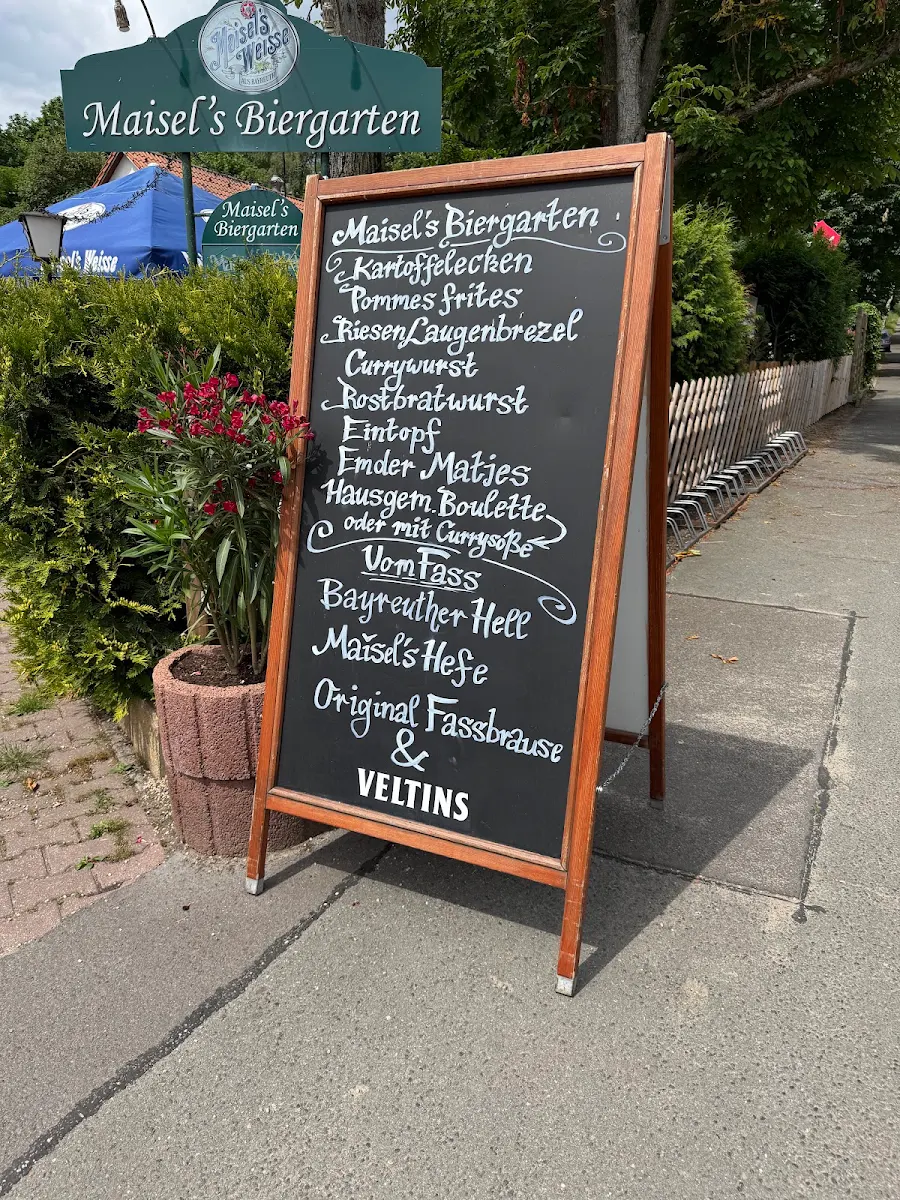 Maisel's
Weisse
Maisel's Biergarten
Maisel's
Biergarten
Maisel's Biergarten
Kartoffelecken
Pommes frites
Riesen Laugenbrezel
Currywurst
Rostbratwurst
Eintopf
Emder Matjes
Hausgem. Boulette
oder mit Currysoße
Vom Fass
Bayreuther Hell
Maisel's Hefe
Original Fassbrause
&
VELTINS